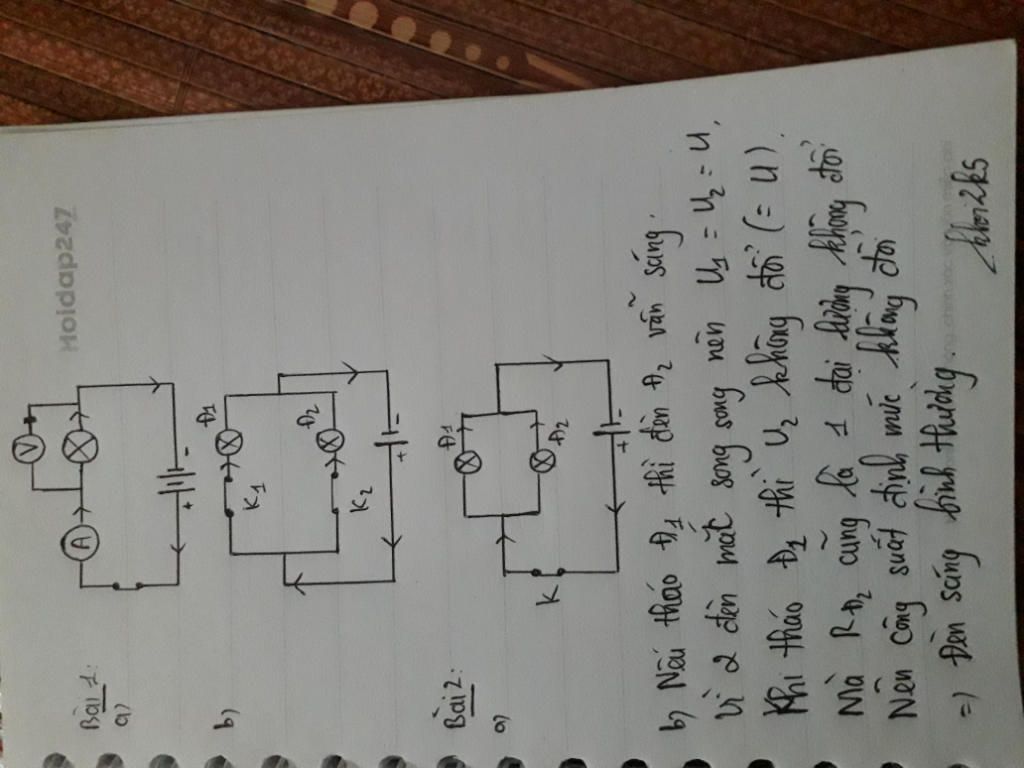 Hoidap247
Bài 1:
a)
V
A
+ -
b)
K1 Đ1
K2 Đ2
+ -
Bài 2:
a)
Đ1
Đ2
K
+ -
b) Nếu tháo Đ1 thì đèn Đ2 vẫn sáng.
Vì 2 đèn mắt song song nên U1 = U2 = U.
Khi tháo Đ1 thì U2 không đổi (= U).
Mà RĐ2 cũng là 1 đại lượng không đổi
Nên công suất định mức không đổi
=) Đèn sáng bình thường.
khoi2k5